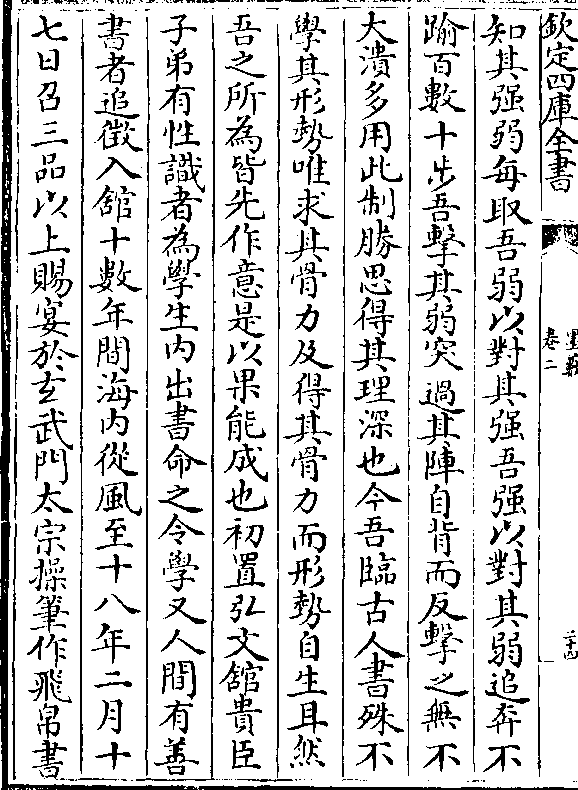 欽定四庫全書
墨藪
卷二
二十四
知其强弱每取吾弱以對其强吾强以對其弱追奔不
踰百數十步吾擊其弱突過其陣自背而反擊之無不
大潰多用此制勝思得其理深也今吾臨古人書殊不
學其形勢唯求其骨力及得其骨力而形勢自生耳然
吾之所為皆先作意是以果能成也初置弘文舘貴臣
子弟有性識者為學生内出書命之令學又人間有善
書者追徴入舘十數年間海内從風至十八年二月十
七日召三品以上賜宴於玄武門太宗操筆作飛帛書